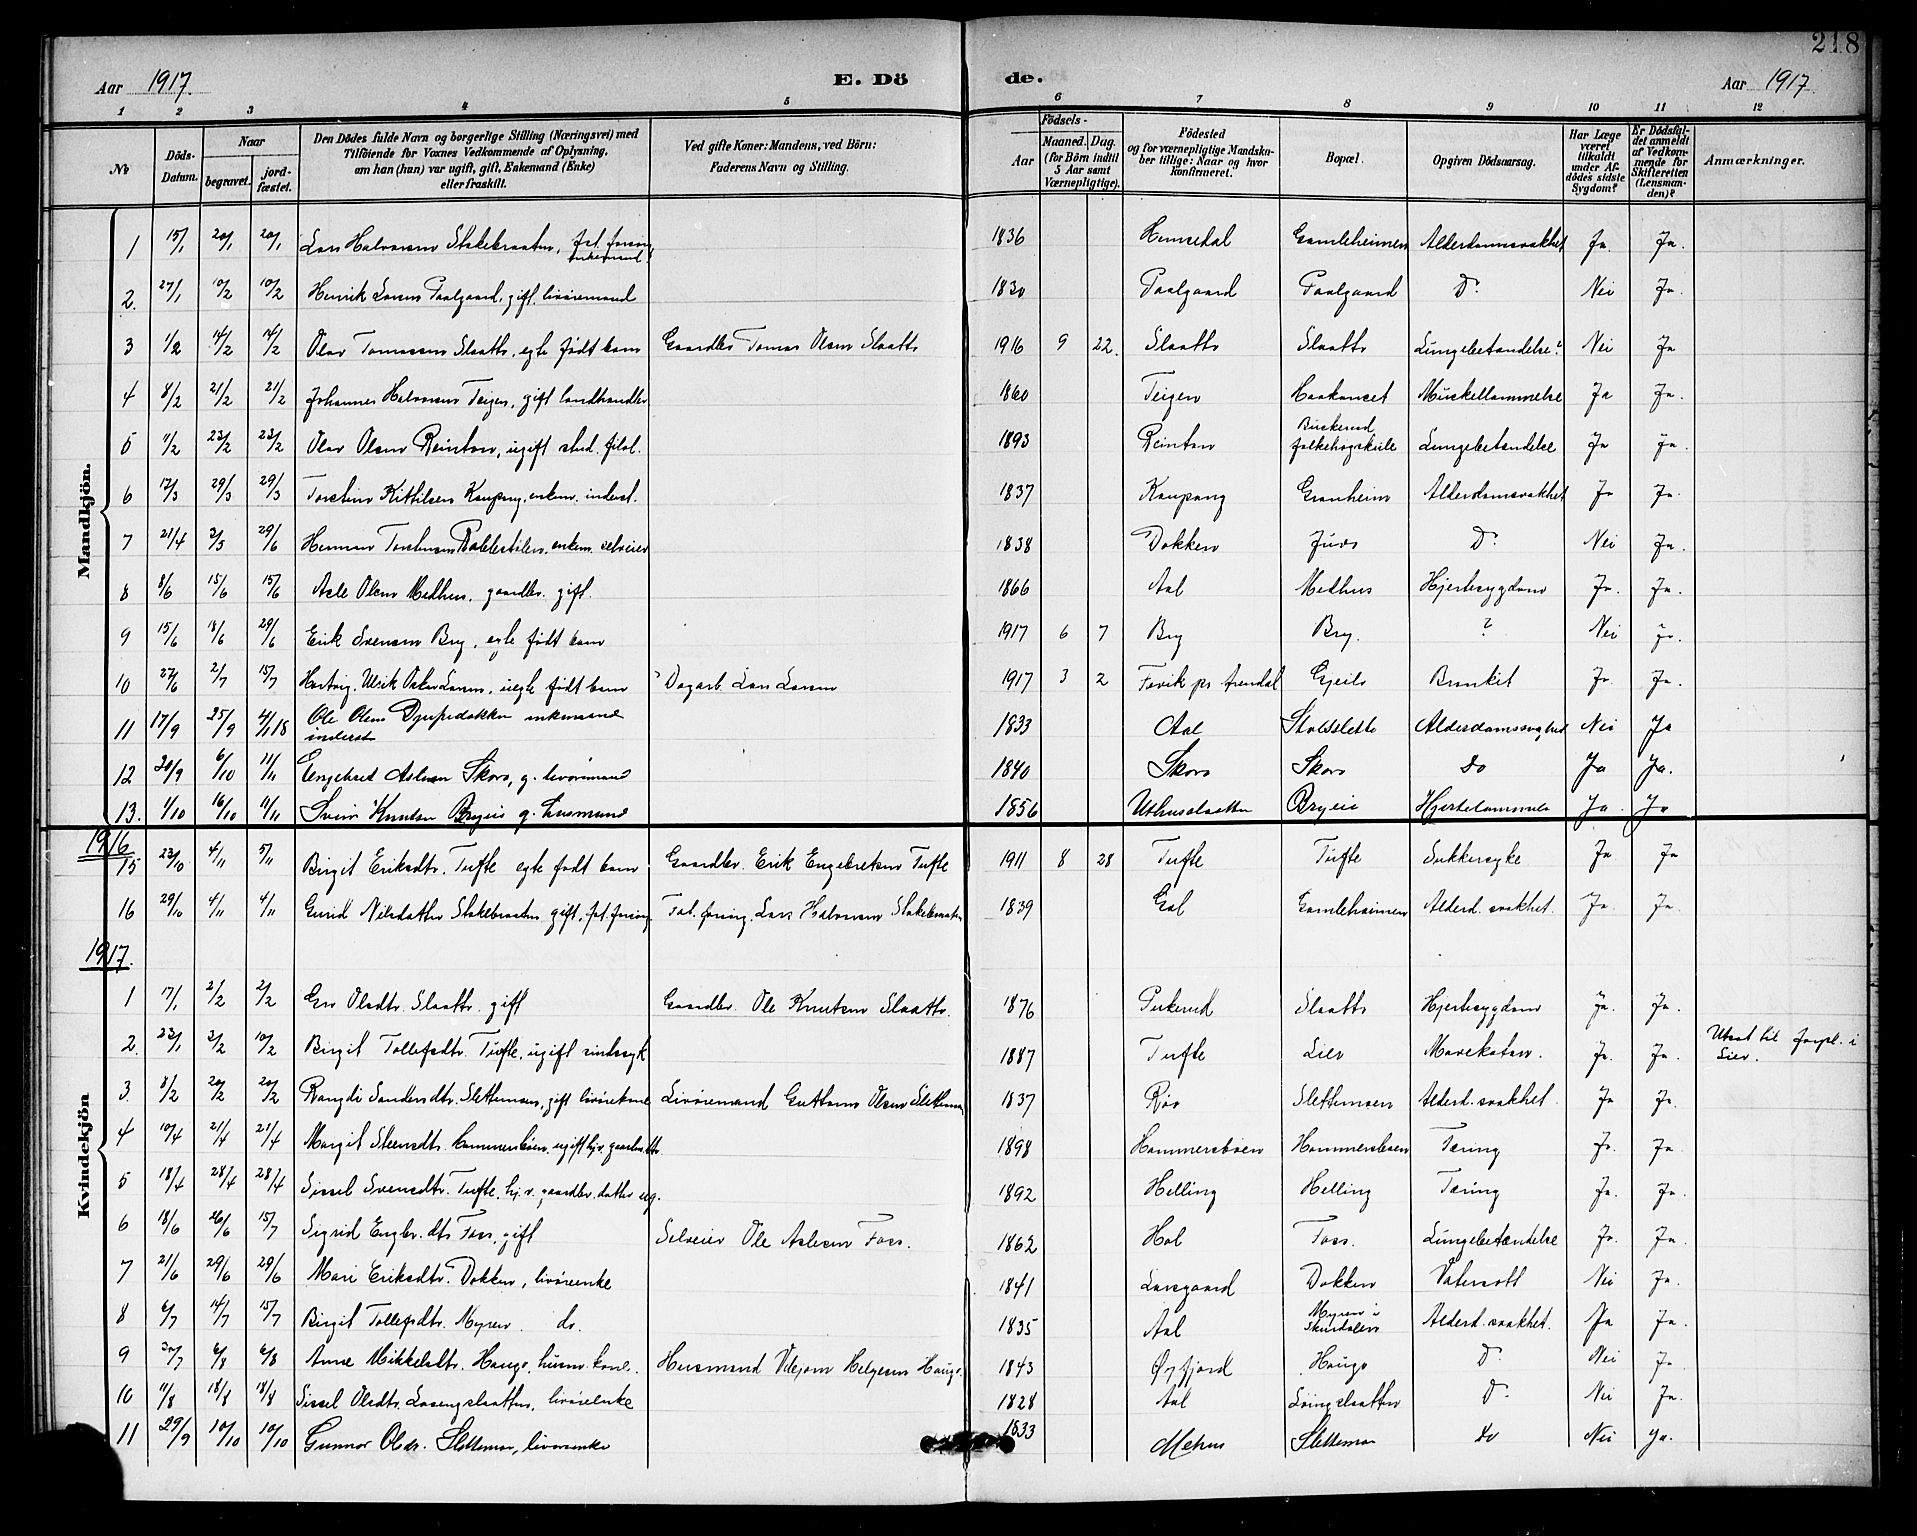 218
Aar 1917. E. Döde. Aar 1917.
1 2 3 4 5 6 7 8 9 10 11 12
No Döds-Datum. Naar begravet. jordfæstet. Den Dödes fulde Navn og borgerlige Stilling (Næringsvei) med Tilföiende for Voxnes Vedkommende af Oplysning, om han (hun) var ugift, gift, Enkemand (Enke) eller fraskilt. Ved gifte Koner: Mandens, ved Börn: Faderens Navn og Stilling. Födsels- Aar Maaned. Dag. (for Börn indtil 5 Aar samt Værnepligtige). Födested og for værnepligtige Mandskaber tillige: Naar og hvor konfirmeret. Bopæl. Opgiven Dödsaarsag. Har Læge været tilkaldt under Afdödes sidste Sygdom? Er Dödsfaldet anmeldt af Vedkommende for Skifteretten (Lensmanden)? Anmærkninger.
Mandkjön.
1 15/1 20/1 20/1 Lars Halvorsen Stakebraaten, fat. forsörg. enkemand 1836 Hemsedal Gamleheimen Alderdomssvakhet Ja. Ja.
2. 27/1 10/2 10/2 Henrik Larsen Paalgaard, gift, livöremand 1830 Paalgaard Paalgaard Do Nei Ja.
3 1/2 14/2 14/2 Olav Tomassen Slaatto, egte född barn Gaardbr. Tomas Olsen Slaatto 1916 9 22. Slaatto Slaatto Lungebetændelse? Nei Ja
4 8/2 21/2 21/2 Johannes Halvorsen Teigen, gift landhandler 1860 Teigen Haakonset Muskellammelse Ja Ja.
5 11/2 23/2 23/2 Olav Olsen Reinton, ugift stud. filol. 1893 Reinton Buskerud folkehøgskule Lungebetændelse Ja Ja.
6 17/3 29/3 29/3 Torstein Kittilsen Kaupang, enkem. inderst. 1837 Kaupang Granheim Alderdomssvakhet Ja Ja.
7 21/4 3/5 29/6 Herman Torstensen Rallestölen, enkem. selveier 1838 Dokken Juvo Do Nei Ja.
8 8/6 15/6 15/6 Asle Olsen Medhus, gaardbr. gift. 1866 Aal Medhus Hjertesygdom Ja. Ja.
9 15/6 18/6 29/6 Erik Svensen Bry, egte född barn 1917 6 7 Bry Bry. ? Nei Ja.
10 27/6 2/7 15/7 Hartvig Ulrik Oskar Larsen, uegte född barn Dagarb. Lars Larsen 1917 3 2 Fævik pr Arendal Gjeilo Bronkit Ja. Ja.
11 17/9 25/9 4/1 18 Ole Olsen Djupedokken enkemand inderst 1833 Aal Stolsslette Alderdomssvaghed Nei Ja
12 20/9 6/10 11/11 Engebret Aslesen Skoro, g. livöremand 1840 Skoro Skoro do Ja Ja.
13. 1/10 16/10 11/11 Svein Knutsen Bryeie g. husmand 1856 Uthusslaatten Bryeie Hjertelammelse Ja. Ja
1916
15 23/10 4/11 5/11 Birgit Eriksdtr. Tufte egte född barn Gaardbr. Erik Engebretsen Tufte 1911 8 28 Tufte Tufte Sukkersyke Ja Ja
16 29/10 4/11 4/11 Gurid Nilsdatter Stakebraaten, gift, fat. forsörg. Fat. forsörg. Lars Halvorsen Stakebraaten 1839 Gol Gamleheimen Alderd. svakhet. Ja. Ja.
1917.
Kvindekjön
1 17/1 2/2 2/2 Gro Olsdtr. Slaatto. gift Gaardbr. Ole Knutsen Slaatto. 1876 Perkerud Slaatto Hjertesygdom Ja. Ja.
2. 23/1 3/2 10/2 Birgit Tollefsdtr. Tufte, ugift sindssyk 1887 Tufte Lier Mavekatar. Ja. Ja. Utsat til forpl. i Lier.
3. 8/2 20/2 20/2 Rangdi Sandersdtr. Slettemoen, gift livörekone Livöremand Guttorm Olsen Slettemoen 1837 Röo Slettemoen Alderd. svakhet. Ja Ja.
4 10/4 21/4 21/4 Margit Steensdtr. Hammersböen, ugift hjv. gaardbr. dtr. 1898 Hammersböen Hammersböen Tæring Ja. Ja
5 18/4 28/4 28/4 Sissel Svensdtr. Tufte, hj. v. gaardbr. datter ug. 1892 Helling Helling Tæring Ja. Ja.
6 18/6 26/6 15/7 Sigrid Engbr. dtr Foss, gift Selveier Ole Aslesen Foss. 1862 Hol Foss. Lungebetændelse Ja. Ja.
7 21/6 29/6 29/6 Mari Eriksdtr. Dokken, livöreenke 1841 Larsgaard Dokken Vatersott Nei Ja.
8 6/7 14/7 15/7 Birgit Tollefsdtr. Myren. do. 1835 Aal Myren i Skurdalen Alderd. svakhet. Ja Ja.
9 30/7 6/8 6/8 Anne Mikkelsdtr. Haugo, husm. kone. Husmand Vebjörn Helgesen Haugo. 1843 Öyfjord Haugo Do Nei Ja
10 11/8 18/8 18/8 Sissel Olsdtr. Lovengslaatten, livöreenke 1828 Aal Löingslaatten Do Nei Ja.
11 29/9 10/10 10/10 Gunnor Olsdr. Slettemo, livöreenke 1833 Mehus Slettemo do Nei Ja.